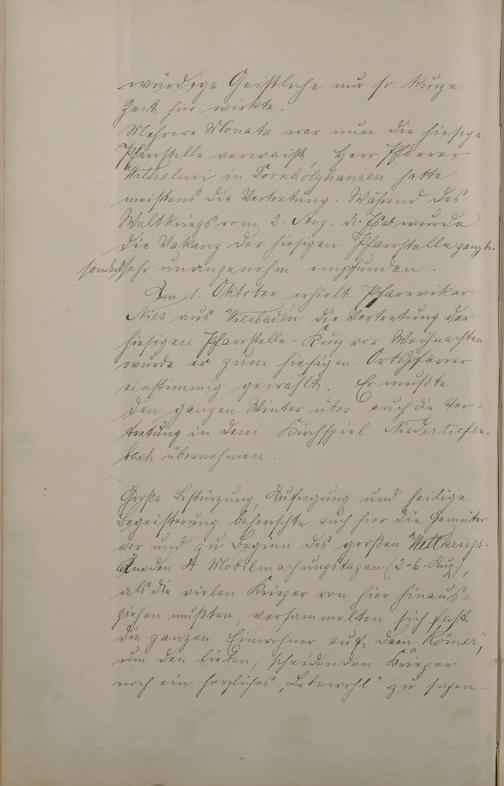 würdige Geistliche nur so kurze
Zeit hier wirkte.
Mehrere Monate war nun die hiesige
Pfarrstelle verwaist. Herr Pfarrer
Wilhelmi in Dornholzhausen hatte
meistens die Vertretung. Während des
Weltkriegs vom 2. Aug. d. Js. ab wurde
die Vakanz der hiesigen Pfarrstelle ganz be-
sonders sehr unangenehm empfunden.
Am 1. Oktober erhielt Pfarrvikar
Nies aus Wiesbaden die Vertretung der
hiesigen Pfarrstelle. Kurz vor Weihnachten
wurde er zum hiesigen Ortspfarrer
einstimmig gewählt. Er mußte
den ganzen Winter über auch die Ver-
tretung in dem Kirchspiel Niedertiefen-
bach übernehmen.
Große Bestürzung, Aufregung und heilige
Begeisterung beherrschte auch hier die Gemüter
vor und zu Beginn des großen Weltkriegs.
An den 4 Mobilmachungstagen (2-6. Aug.),
als die vielen Krieger von hier hinaus-
ziehen mußten, versammelten sich fast
die ganzen Einwohner auf dem „Römer",
um den lieben, scheidenden Krieger
noch ein herzliches „Lebewohl" zu sagen.